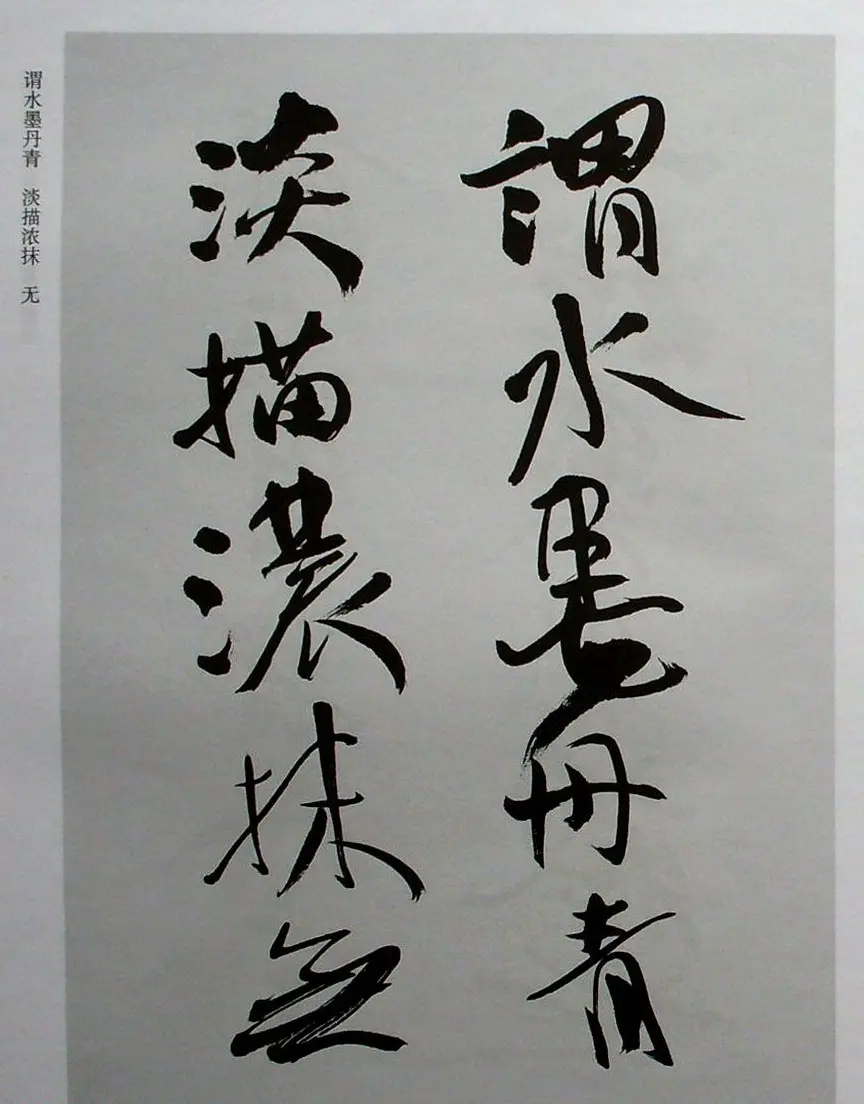 謂水墨丹青
淡描濃抹無
谓水墨丹青 淡描浓抹 无